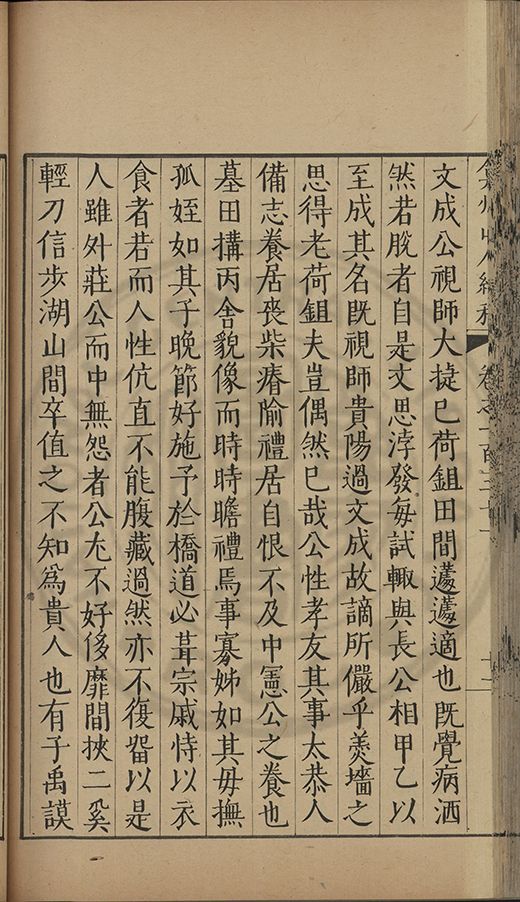 文成公視師大捷已荷鉏田間蘧蘧適也既覺病洒
然若脫者自是文思浡發每試輙與長公相甲乙以
至成其名既視師貴陽過文成故謫所儼乎羮墻之
思得老荷鉏夫豈偶然已哉公性孝友其事太恭人
備志養居喪柴瘠踰禮居自恨不及中憲公之養也
墓田搆丙舍貌像而時時瞻禮焉事寡姊如其毋撫
孤姪如其子晚節好施予於橋道必葺宗戚恃以衣
食者若而人性伉直不能腹藏過然亦不復畱以是
人雖外莊公而中無怨者公尤不好侈靡間挾二奚
輕刀信步湖山間卒值之不知為貴人也有子禹謨